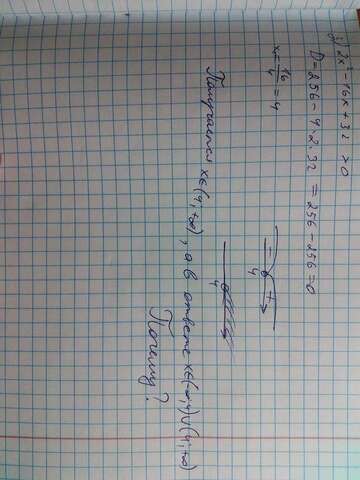 з) 2x² - 16x + 32 > 0
D = 256 - 4·2·32 = 256 - 256 = 0
x = 16/4 = 4
- +
4
4
Получается x∈(4;+∞), а в ответе x∈(-∞;4)∪(4;+∞)
Почему?